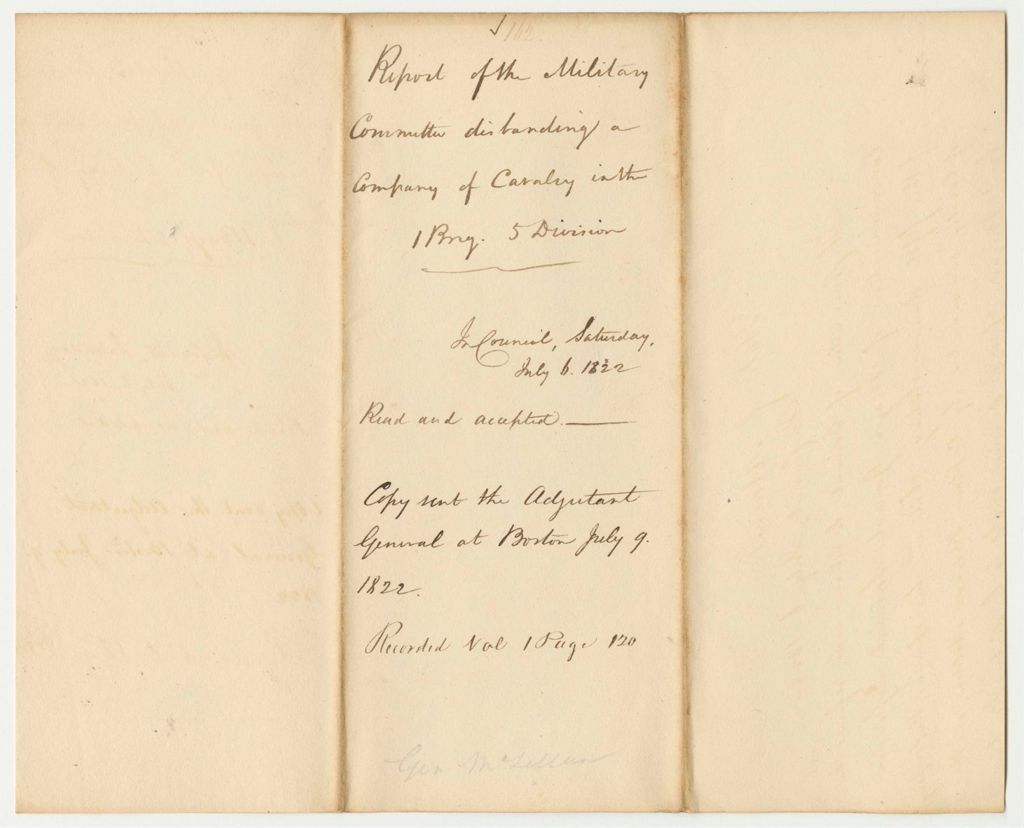 Report of the Military
Committee disbanding a
Company of Cavalry in the
1 Brig. 5 Division
In Council, Saturday,
July 6. 1822
Read and accepted.
Copy sent the Adjutant
General at Boston July 9.
1822.
Recorded Vol 1 Page 120
Gen McLellan